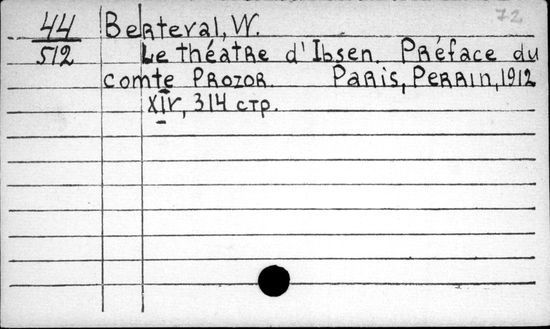 44 Berteval, W. 72
512 Le théatre d'Ibsen. Préface du
comte Prozor. Paris, Perrin, 1912
XIV, 314 стр.